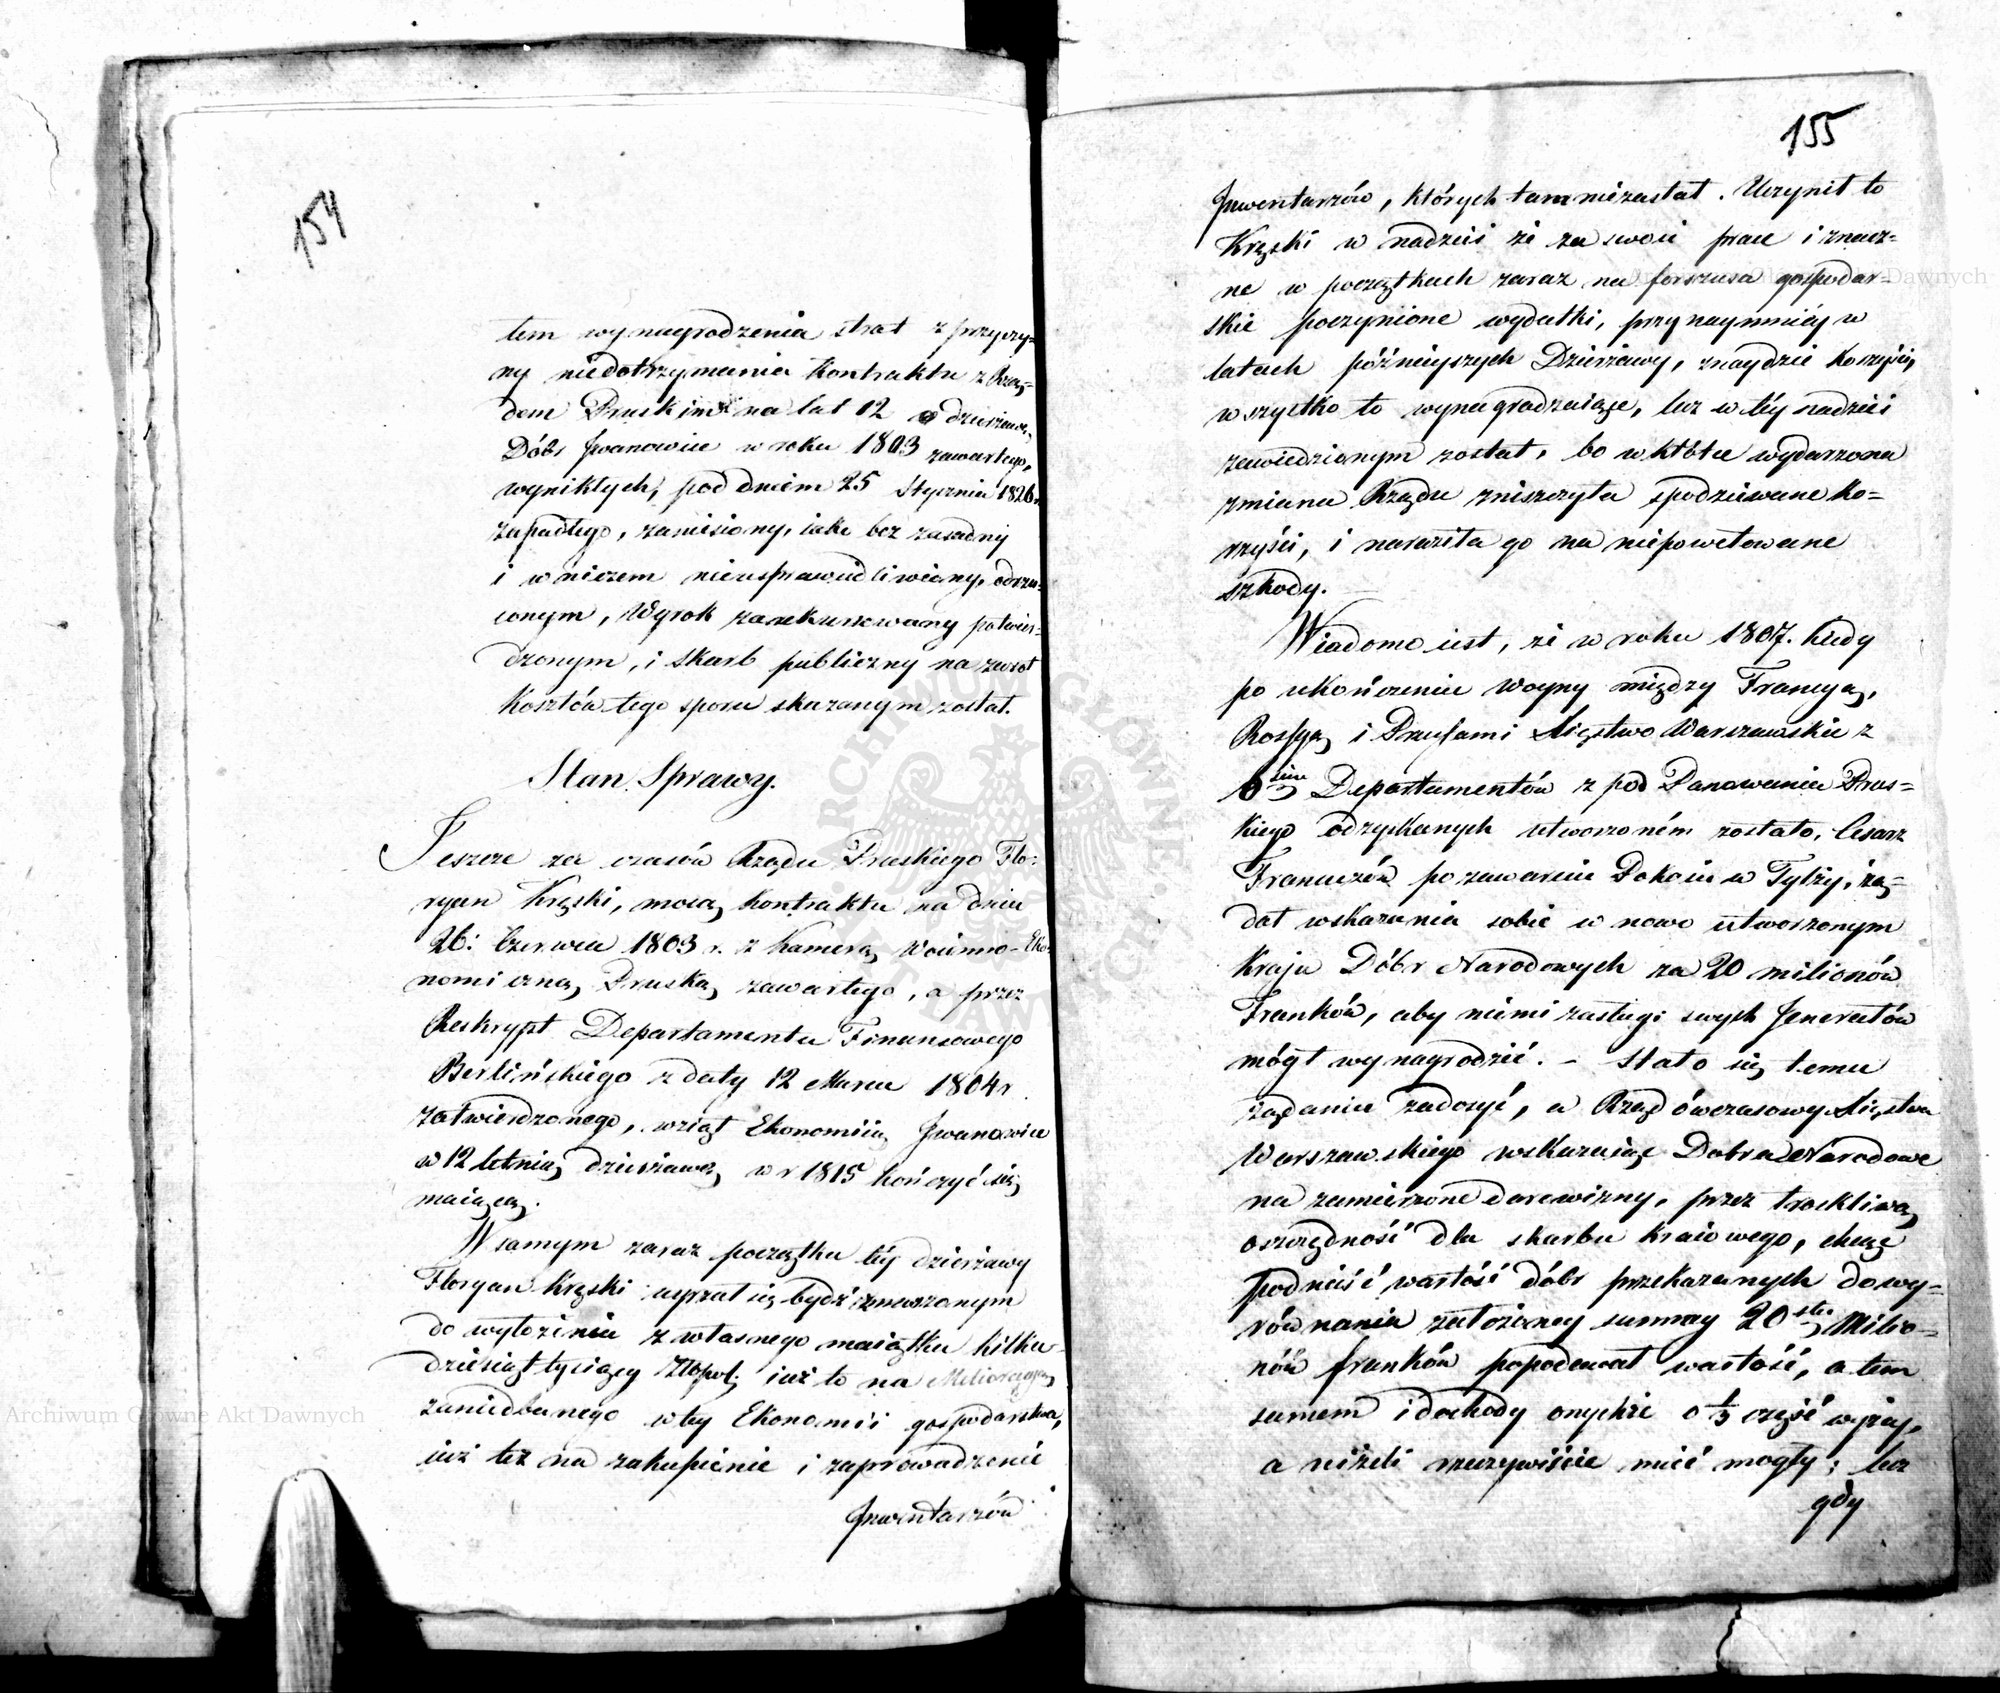 154
tem wynagrodzenia strat z przyczy-
ny niedotrzymania Kontraktu z Rzą-
dem Pruskim na lat 12 o dzierżawę
Dóbr Iwanowice w roku 1803 zawartego,
wynikłych, pod dniem 25 Stycznia 1826 r.
zapadłego, zaniesiony, iako bez zasadny
i w niczem nieusprawiedliwiony, odrzu-
conym, Wyrok zarekursowany potwier-
dzonym, i Skarb publiczny na zwrot
Kosztów tego sporu skazanym został.
Stan Sprawy.
Jeszcze za czasów Rządu Pruskiego Flo-
ryan Kręski, mocą kontraktu na dniu
26: Czerwca 1803 r. z Kamerą Woienno-Eko-
nomiczną Pruską zawartego, a przez
Reskrypt Departamentu Finansowego
Berlińskiego z daty 12 Marca 1804 r
zatwierdzonego, wziął Ekonomiią Iwanowice
w 12 letnią dzierżawę w r 1815 kończyć się
maiącą.
W samym zaraz początku téy dzierżawy
Floryan Kręski uyrzał się bydź zmuszonym
do wyłożenia z własnego maiątku kilku-
dziesiąt tysięcy Złlpol; iuż to na Melioracyą
zaniedbanego w téy Ekonomii gospodarstwa,
iuż też na zakupienie i zaprowadzenie
Inwentarzów
155
Inwentarzów, których tam niezastał. Uczynił to
Kręski w nadziei że za swoie prace i znacz-
ne w początkach zaraz na forszusa gospodar-
skie poczynione wydatki, przynaymniéy w
latach późnieyszych Dzierżawy, znaydzie Korzyści,
wszystko to wynagradzaiące, lecz w téy nadziei
zawiedzionym został, bo wkrótce wydarzona
zmiana Rządu zniszczyła spodziewane ko-
rzyści, i naraziła go na niepowetowane
szkody.
Wiadomo iest, że w roku 1807. kiedy
po ukończeniu woyny między Francyą,
Rossyą i Prusami Xięstwo Warszawskie z
6ciu Departamentów z pod Panowania Prus-
kiego odzyskanych utworzoném zostało, Cesarz
Francuzów po zawarciu Pokoiu w Tylży, żą-
dał wskazania sobie w nowo utworzonym
Kraju Dóbr Narodowych za 20 milionów
Franków, aby niemi zasługi swych Jenerałów
mógł wynagrodzić. - Stało się temu
żądaniu zadosyć, a Rząd ówczasowy Xięstwa
Warszawskiego wskazuiąc Dobra Narodowe
na zamierzone darowizny, przez troskliwą
oszczędność dla skarbu kraiowego, chcąc
podnieść wartość dóbr przekazanych do wy-
równania założoney summy 20stu Milio-
nów franków popodawał wartość, a tem
samem i dochody onychże o 1/3 część wyżey,
a niżeli rzeczywiście mieć mogły; lecz
gdy
Archiwum Główne Akt Dawnych